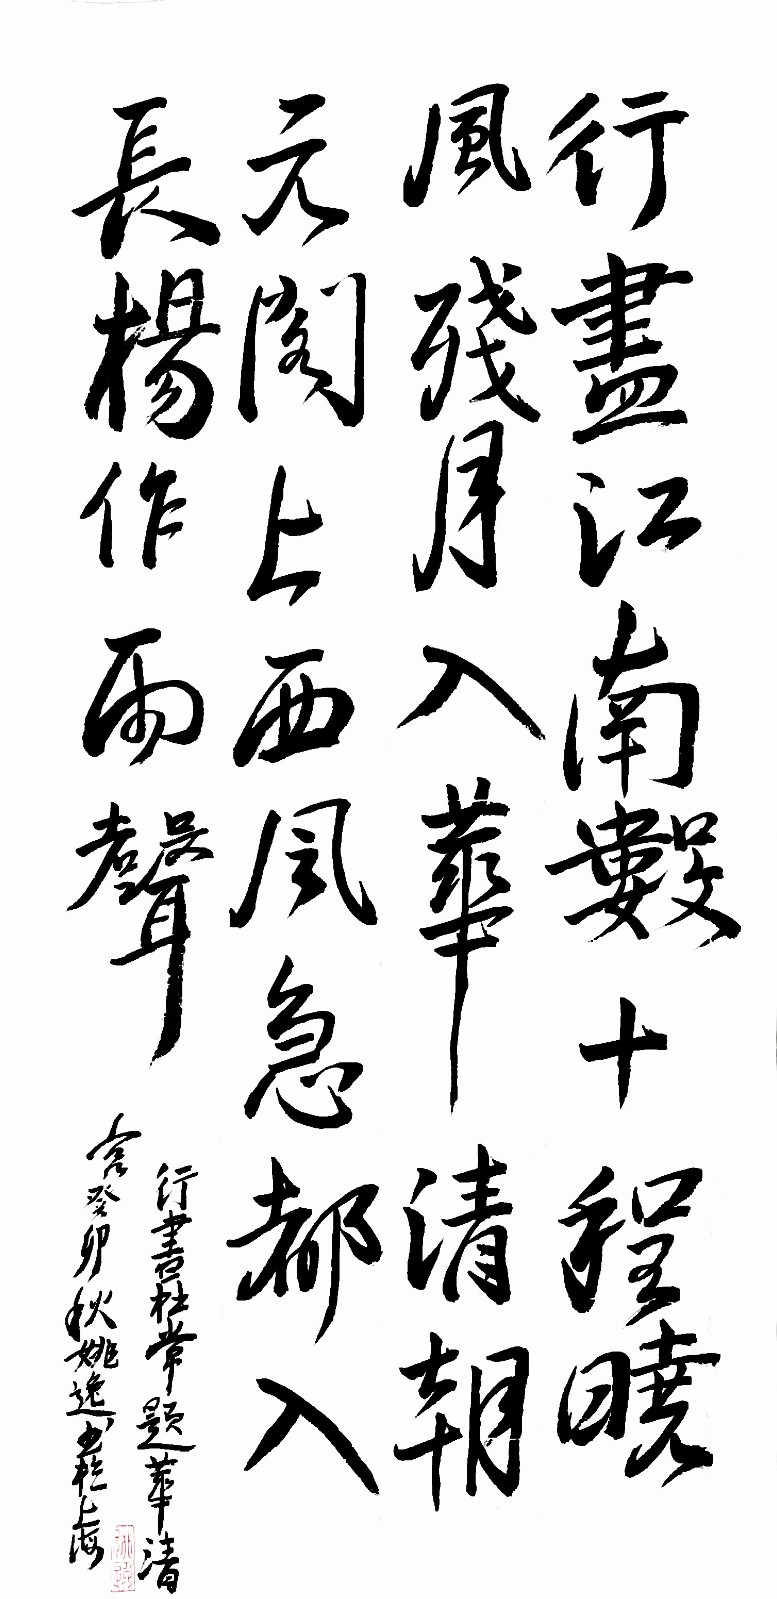 行盡江南數十程曉
風殘月入華清朝
元閣上西風急都入
長楊作雨聲
行書杜常題華清
宮癸卯秋姚逸書於上海